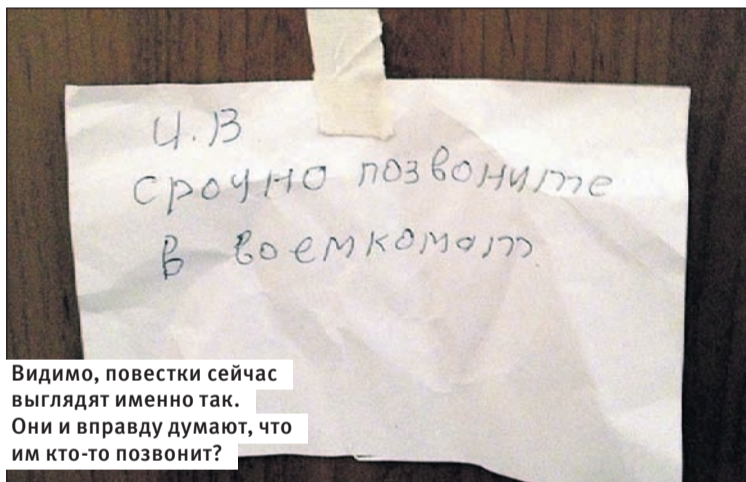 И.В
срочно позвоните
в воемкомат
Видимо, повестки сейчас
выглядят именно так.
Они и вправду думают, что
им кто-то позвонит?